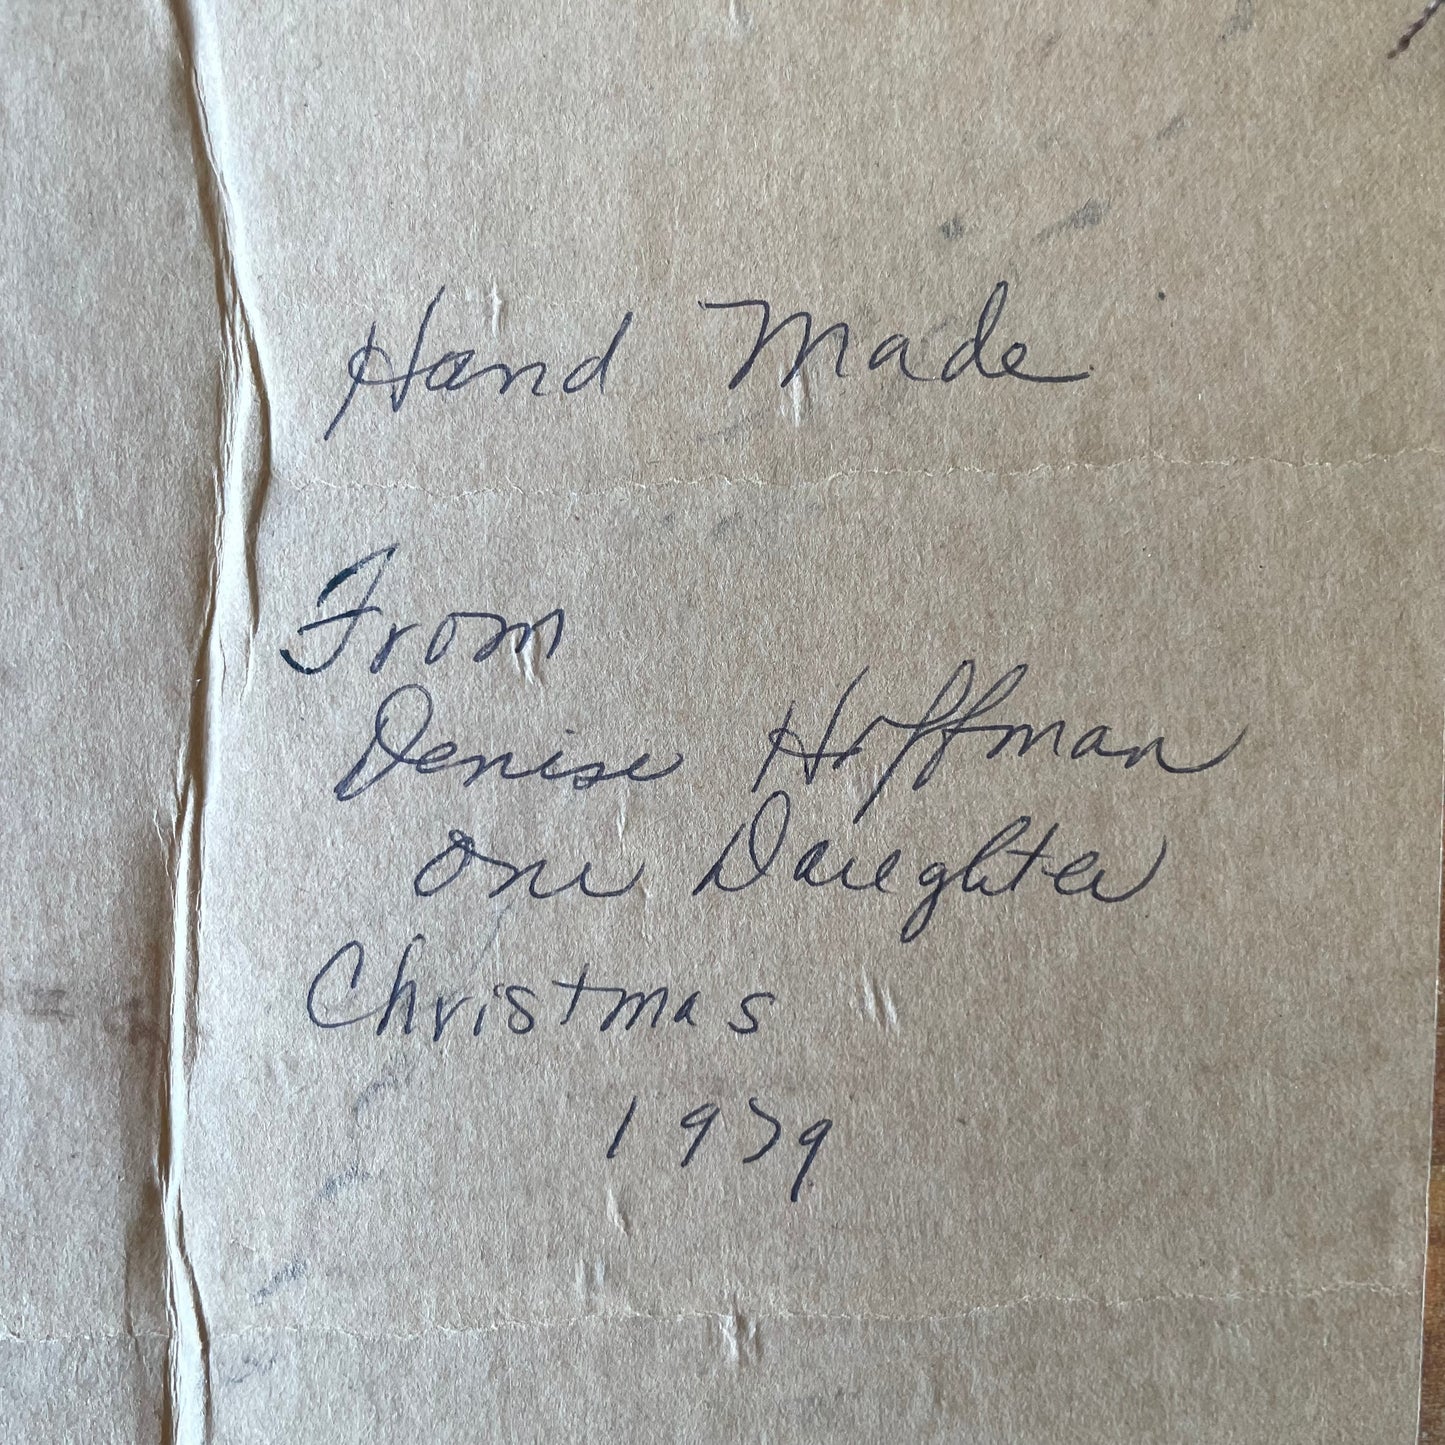 Hand Made
From
Denise Hoffman
our Daughter
Christmas
1979